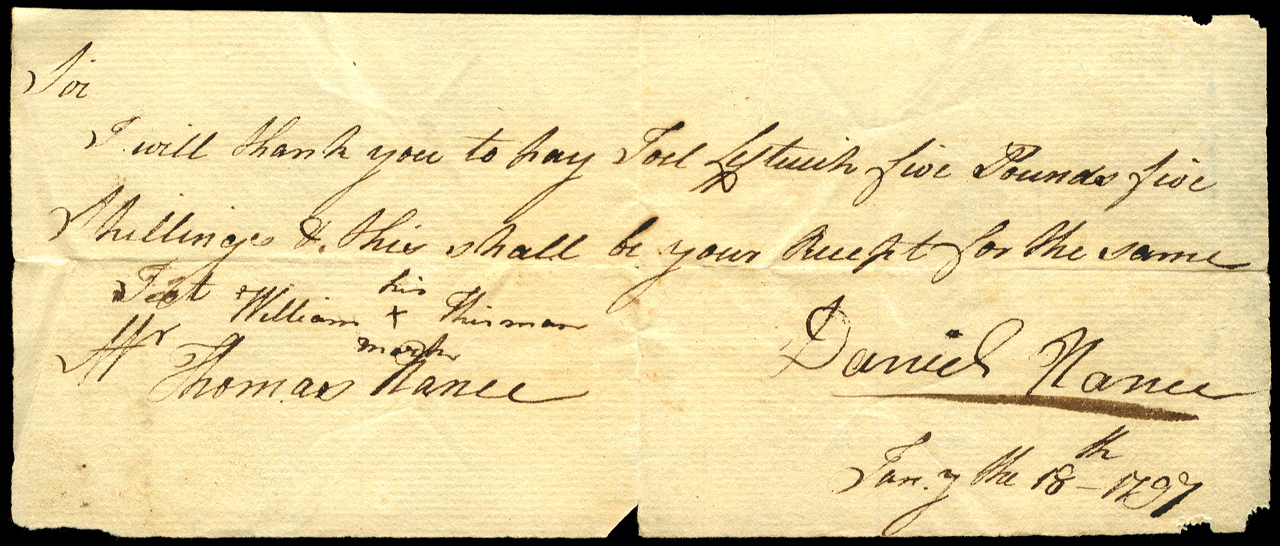 Sir
I will thank you to pay Joel Leftwich five Pounds five
Shillings & this shall be your Recept for the same
Test William his x mark Thirman
Mr Thomas Nance
Daniel Nance
Jan.y the 18th - 1797